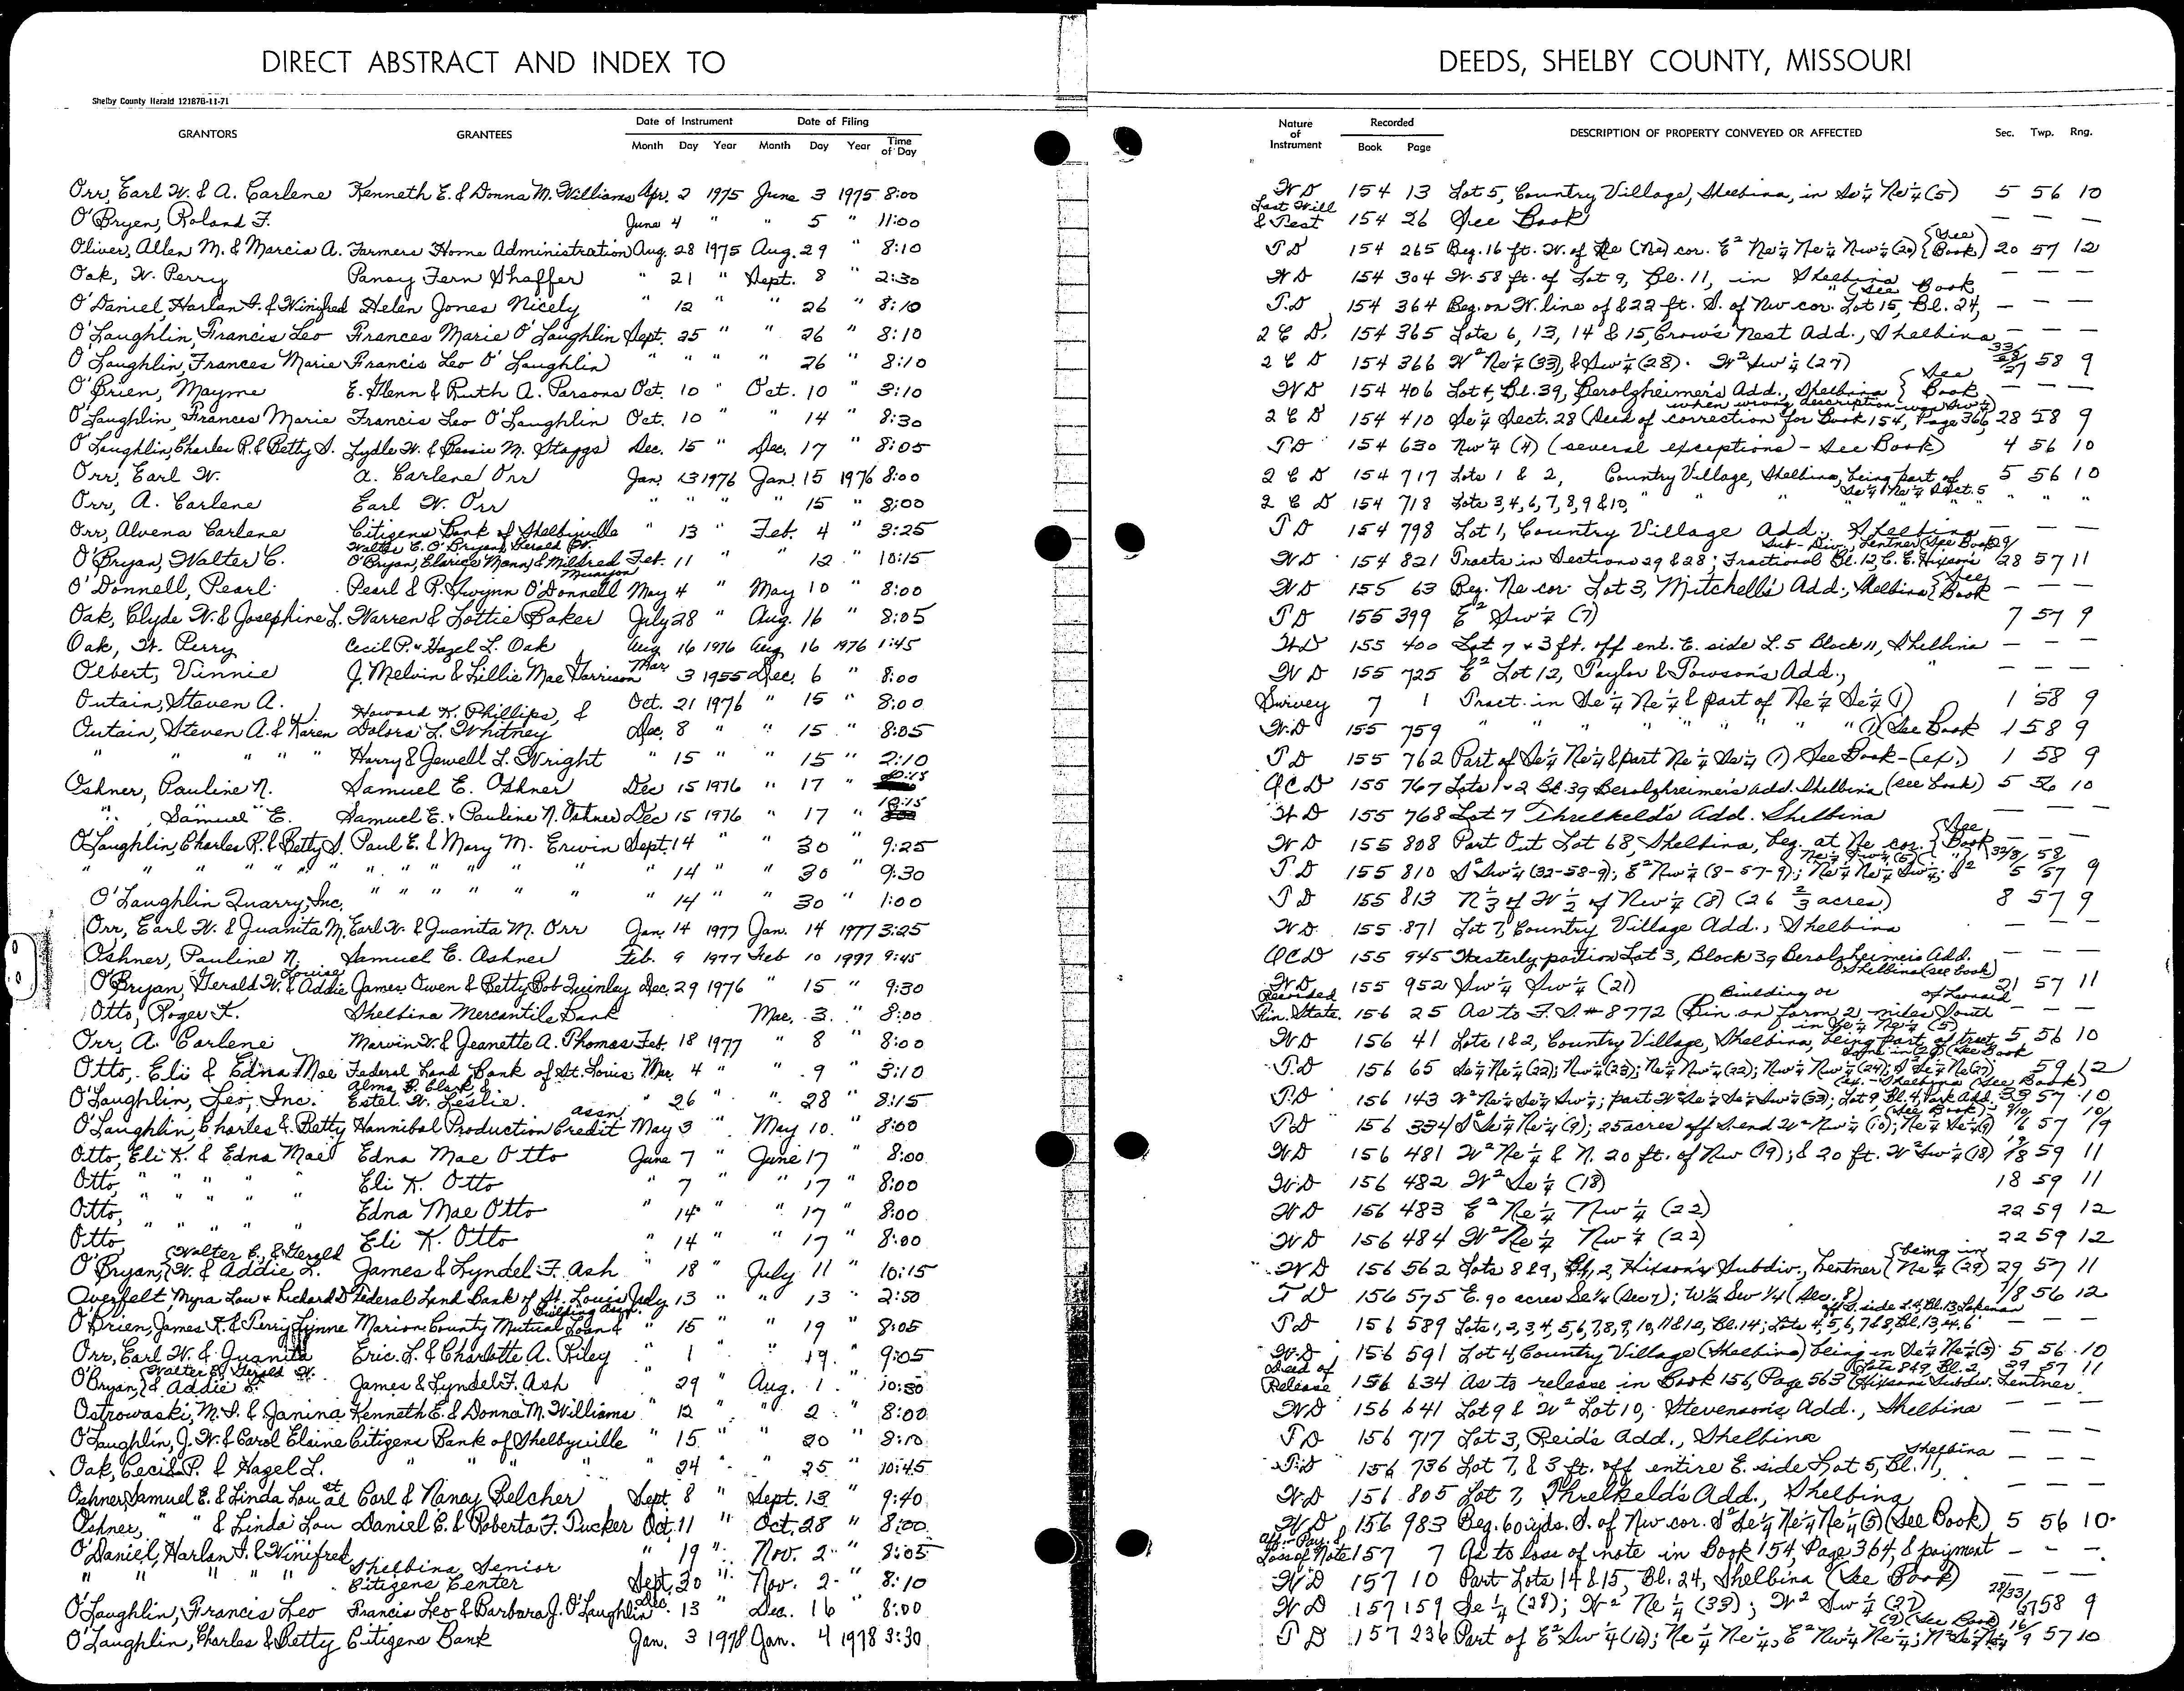 DIRECT ABSTRACT AND INDEX TO DEEDS, SHELBY COUNTY, MISSOURI
Shelby County Herald 12187B-11-71
GRANTORS GRANTEES Date of Instrument Month Day Year Date of Filing Month Day Year Time of Day Nature of Instrument Recorded Book Page DESCRIPTION OF PROPERTY CONVEYED OR AFFECTED Sec. Twp. Rng.
Orr, Earl W. & A. Carlene Kenneth E. & Donna M. Williams Apr. 2 1975 June 3 1975 8:00 WD 154 13 Lot 5, Country Village, Shelbina, in Se¼ Ne¼ (5) 5 56 10
O'Bryen, Roland F. June 4 " " 5 " 11:00 Last Will & Test 154 26 See Book — — —
Oliver, Allen M. & Marcia A. Farmers Home Administration Aug. 28 1975 Aug. 29 " 8:10 TD 154 265 Beg. 16 ft. W. of Ne (Ne) cor. E² Ne¼ Ne¼ Nw¼ (20) {See Book} 20 57 12
Oak, W. Perry Pansy Fern Shaffer " 21 " Sept. 8 " 2:30 WD 154 304 W. 58 ft. of Lot 9, Bl. 11, in Shelbina — — —
O'Daniel, Harlan S. & Winifred Helen Jones Nicely " 12 " 26 " 8:10 T.D 154 364 Beg. on W. line of & 22 ft. S. of Nw cor. Lot 15, Bl. 24, " (See Book — — —
O'Laughlin, Francis Leo Frances Marie O'Laughlin Sept. 25 " " 26 " 8:10 2 C D, 154 365 Lots 6, 13, 14 & 15, Crow's Nest Add., Shelbina — — —
O'Laughlin, Frances Marie Francis Leo O'Laughlin " " " " 26 " 8:10 2 C D 154 366 W² Ne¼ (33), & Sw¼ (28). W² Sw¼ (27) 33/28/27 58 9
O'Brien, Mayme E. Glenn & Ruth A. Parsons Oct. 10 " Oct. 10 " 3:10 WD 154 406 Lot 4, Bl. 39, Berolzheimer's Add., Shelbina {See Book — — —
O'Laughlin, Frances Marie Francis Leo O'Laughlin Oct. 10 " " 14 " 8:30 2 C D 154 410 Se¼ Sect. 28 (Deed of correction for Book 154, Page 366, when wrong description was Sw¼) 28 58 9
O'Laughlin, Charles R. & Betty S. Lydle W. & Bessie M. Staggs Dec. 15 " Dec. 17 " 8:05 TD 154 630 Nw¼ (4) (several exceptions) - See Book) 4 56 10
Orr, Earl W. A. Carlene Orr Jan. 13 1976 Jan. 15 1976 8:00 2 C D 154 717 Lots 1 & 2, Country Village, Shelbina, being part of Se¼ Ne¼ Sect. 5 5 56 10
Orr, A. Carlene Earl W. Orr " " " " 15 " 8:00 2 C D 154 718 Lots 3, 4, 6, 7, 8, 9 & 10, " " " " " " "
Orr, Alvena Carlene Citizens Bank of Shelbyville " 13 " Feb. 4 " 3:25 TD 154 798 Lot 1, Country Village Add., Shelbina — — —
O'Bryan, Walter C. Walter C. O'Bryan, Gerald W. O'Bryan, Clarice Mann & Mildred Munson Feb. 11 " " 12 " 10:15 WD 154 821 Tracts in Sections 29 & 28; Fractional Bl. 12, C. E. Hixson's Sub-Div., Lentner (See Book 29/28 57 11
O'Donnell, Pearl Pearl & R. Gwynn O'Donnell May 4 " May 10 " 8:00 WD 155 63 Beg. Ne cor. Lot 3, Mitchell's Add., Shelbina {See Book — — —
Oak, Clyde W. & Josephine L. Warren & Lottie Baker July 28 " Aug. 16 " 8:05 TD 155 399 E² Sw¼ (7) 7 57 9
Oak, W. Perry Cecil P. & Hazel L. Oak Aug 16 1976 Aug 16 1976 1:45 WD 155 400 Lot 7 & 3 ft. off ent. E. side L. 5 Block 11, Shelbina — — —
Olbert, Vinnie J. Melvin & Lillie Mae Garrison Mar 3 1955 Dec. 6 " 8:00 WD 155 725 E² Lot 12, Taylor & Towson's Add., " — — —
Outain, Steven A. Oct. 21 1976 " 15 " 8:00 Survey 7 1 Tract in Se¼ Ne¼ & part of Ne¼ Se¼ (1) 1 58 9
Outain, Steven A. & Karen Howard K. Phillips, & Dolores L. Whitney Dec. 8 " " 15 " 8:05 W.D 155 759 " " " " " " " (1) See Book 1 58 9
" " " " " Harry & Jewell L. Wright " 15 " " 15 " 2:10 TD 155 762 Part of Se¼ Ne¼ & part Ne¼ Se¼ (1) See Book-(ex.) 1 58 9
Oshner, Pauline N. Samuel E. Oshner Dec 15 1976 " 17 " QCD 155 767 Lots 1 & 2 Bl. 39 Berolzheimer's Add. Shelbina (see book) 5 56 10
" , Samuel E. Samuel E. & Pauline N. Oshner Dec 15 1976 " 17 " 10:15 WD 155 768 Lot 7 Threlkeld's Add. Shelbina — — —
O'Laughlin, Charles R. & Betty S. Paul E. & Mary M. Erwin Sept. 14 " " 30 " 9:25 WD 155 808 Part Out Lot 68, Shelbina, beg. at Ne cor. {See Book — — —
" " " " " " " " " " " " 14 " " 30 " 9:30 T.D 155 810 S² Sw¼ (32-58-9); E² Nw¼ (8-57-9); Ne¼ Ne¼ Sw¼; S² Ne¼ Sw¼ (5) 9
O'Laughlin Quarry, Inc. " " " " " " " 14 " " 30 " 1:00 TD 155 813 N⅓ of W½ of Nw¼ (8) (26⅔ acres) 8 57 9
Orr, Earl W. & Juanita M. Earl W. & Juanita M. Orr Jan. 14 1977 Jan. 14 1977 3:25 WD 155 871 Lot 7, Country Village Add., Shelbina — — —
Oshner, Pauline N. Samuel E. Oshner Feb. 9 1977 Feb 10 1977 9:45 QCD 155 945 Westerly portion Lot 3, Block 39 Berolzheimer's Add. Shelbina (see book) — —
O'Bryan, Gerald W. & Addie Louise James Owen & Betty Bob Quinley Dec. 29 1976 " 15 " 9:30 WD 155 952 Sw¼ Sw¼ (21) 21 57 11
Otto, Roger K. Shelbina Mercantile Bank Mar. 3 " 8:00 Recorded Fin. State. 156 25 As to F. S. #8772 (Bin on farm 2 miles South of Leonard Building or
Orr, A. Carlene Marvin W. & Jeanette A. Thomas Feb. 18 1977 " 8 " 8:00 WD 156 41 Lots 1 & 2, Country Village, Shelbina, being part of tract in Se¼ Ne¼ (5) 5 56 10
Otto, Eli & Edna Mae Federal Land Bank of St. Louis Mar. 4 " " 9 " 3:10 T.D 156 65 Se¼ Ne¼ (22); Nw¼ (23); Ne¼ Nw¼ (22); Nw¼ Nw¼ (24); S² Se¼ Ne (27) (See Book 59 12
O'Laughlin, Leo, Inc. Alma B. Clark & Estel W. Leslie " 26 " " 28 " 8:15 T.D 156 143 W² Ne¼ Se¼ Sw¼; part W² Se¼ Se¼ Sw¼ (33); Lot 9 Bl. 4, Park Add. Shelbina (See Book) 33 57 10
O'Laughlin, Charles & Betty Hannibal Production Credit assn. May 3 " May 10 " 8:00 TD 156 334 S² Se¼ Ne¼ (9); 25 acres off S. end W² Nw¼ (10); Ne¼ Se¼ (9) (See Book) 57
Otto, Eli K. & Edna Mae Edna Mae Otto June 7 " June 17 " 8:00 WD 156 481 W² Ne¼ & N. 20 ft. of Nw (19); & 20 ft. W² Sw¼ (18) 19/18 59 11
Otto, " " " " Eli K. Otto " 7 " 17 " 8:00 W.D 156 482 W² Se¼ (18) 18 59 11
Otto, " " " " Edna Mae Otto " 14 " 17 " 8:00 WD 156 483 E² Ne¼ Nw¼ (22) 22 59 12
Otto Eli K. Otto " 14 " " 17 " 8:00 WD 156 484 W² Ne¼ Nw¼ (22) 22 59 12
O'Bryan, {Walter C., & Gerald W. & Addie L. James & Lyndel F. Ash " 18 " July 11 " 10:15 WD 156 562 Lots 8 & 9, Bl. 2, Hixson's Subdiv., Lentner {being in Ne¼ (29) 29 57 11
Overfelt, Myra Lou & Richard D Federal Land Bank of St. Louis July 13 " " 13 " 2:50 TD 156 575 E. 90 acres Se¼ (Sec 7); W½ Sw¼ (Sec. 8) 7/8 56 12
O'Brien, James K. & Terry Lynne Marion County Mutual Loan & Building Assn. " 15 " " 19 " 8:05 TD 156 589 Lots 1, 2, 3, 4, 5, 6, 7, 8, 9, 10, 11 & 12, Bl. 14; Lots 4, 5, 6, 7 & 8, Bl. 13, & 6' off S. side L. 9, Bl. 13, Lakenan — — —
Orr, Earl W. & Juanita Eric L. & Charlotte A. Riley " 1 " " 19 " 9:05 W.D 156 591 Lot 4, Country Village (Shelbina) being in Se¼ Ne¼ (5) 5 56 10
O'Bryan, {Walter C. Gerald W. & Addie L. James & Lyndel F. Ash " 29 " Aug. 1 " 10:30 Deed of Release 156 634 As to release in Book 156, Page 563 (Lots 8 & 9, Bl. 2, Hixson's Subdiv. Lentner 29 57 11
Ostrowaski, M. S. & Janina Kenneth E. & Donna M. Williams " 12 " " 2 " 8:00 WD 156 641 Lot 9 & W² Lot 10, Stevenson's Add., Shelbina — — —
O'Laughlin, J. W. & Carol Elaine Citizens Bank of Shelbyville " 15 " " 20 " 8:10 TD 156 717 Lot 3, Reid's Add., Shelbina — — —
Oak, Cecil P. & Hazel L. " " " " " 24 " " 25 " 10:45 T.D 156 736 Lot 7, & 3 ft. off entire E. side Lot 5, Bl. 11, Shelbina — — —
Oshner, Samuel E. & Linda Lou et al Carl & Nancy Belcher Sept. 8 " Sept. 13 " 9:40 WD 156 805 Lot 7, Threlkeld's Add., Shelbina — — —
Oshner, " " & Linda Lou Daniel E. & Roberta F. Tucker Oct. 11 " Oct. 28 " 8:00 WD 156 983 Beg. 60 yds. S. of Nw cor. S² Se¼ Ne¼ Ne¼ (5) (See Book) 5 56 10
O'Daniel, Harlan S. & Winifred " 19 " Nov. 2 " 8:05 Aff.-Pay. & Loss of Note 157 7 As to loss of note in Book 154, Page 364, & payment — — —
" " " " " Shelbina Senior Citizens Center Sept. 30 " Nov. 2 " 8:10 WD 157 10 Part Lots 14 & 15, Bl. 24, Shelbina (See Book)
O'Laughlin, Francis Leo Francis Leo & Barbara J. O'Laughlin Dec. 13 " Dec. 16 " 8:00 WD 157 159 Se¼ (28); W² Ne¼ (33); W² Sw¼ (27) 28/33/27 58 9
O'Laughlin, Charles & Betty Citizens Bank Jan. 3 1978 Jan. 4 1978 3:30 TD 157 236 Part of E² Sw¼ (16); Ne¼ Ne¼, E² Nw¼ Ne¼; N² Se¼ Ne¼ (9) (See Book) 16/9 57 10